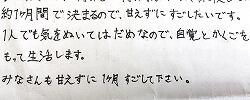 約1ヶ月間で決まるので、甘えずにすごしたいです。
1人でも気をぬいてはだめなので、自覚とかくごを
もって生活します。
みなさんも甘えずに1ヶ月すごして下さい。